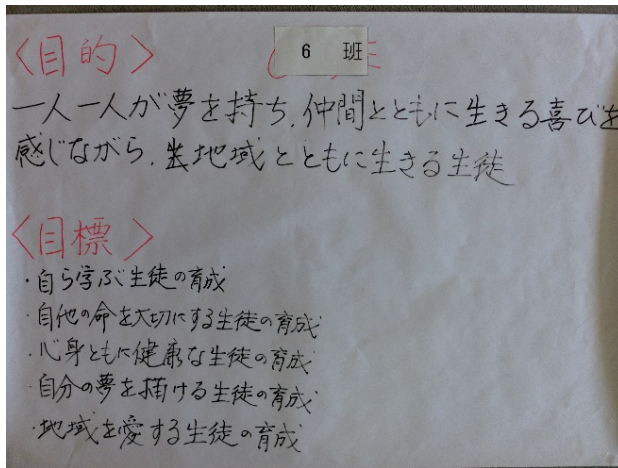 <目的>
6 班
一人一人が夢を持ち、仲間とともに生きる喜びを
感じながら、地域とともに生きる生徒
<目標>
・自ら学ぶ生徒の育成
・自他の命を大切にする生徒の育成
・心身ともに健康な生徒の育成
・自分の夢を描ける生徒の育成
・地域を愛する生徒の育成